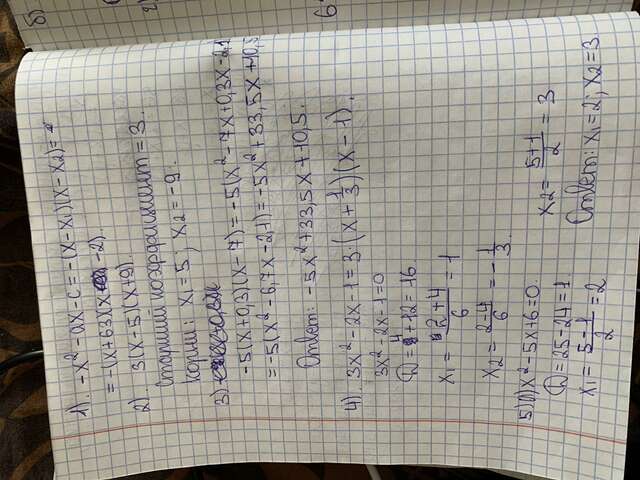 б)
1). -x² - ax - c = -(x - x₁)(x - x₂) =
= -(x + 63)(x - 2).
2) 3(x - 5)(x + 9).
Старший коэффициент = 3.
Корни: x₁ = 5; x₂ = -9.
3)
-5(x + 0,3)(x - 7) = -5(x² - 7x + 0,3x - 2,1
= -5(x² - 6,7x - 2,1) = -5x² + 33,5x + 10,5
Ответ: -5x² + 33,5x + 10,5.
4) 3x² - 2x - 1 = 3·(x + 1/3)(x - 1).
3x² - 2x - 1 = 0
D = 4 + 12 = 16
x₁ = (2 + 4)/6 = 1
x₂ = (2 - 4)/6 = -1/3.
5) x² - 5x + 6 = 0.
D = 25 - 24 = 1
x₁ = (5 - 1)/2 = 2
x₂ = (5 + 1)/2 = 3
Ответ: x₁ = 2; x₂ = 3